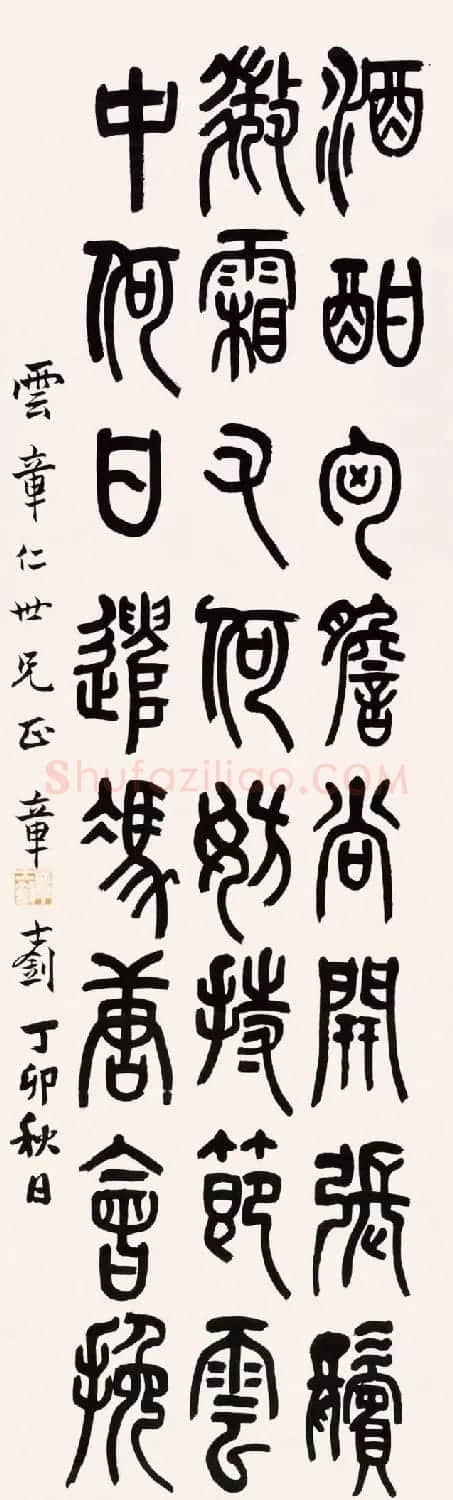 酒酣匈膽尚開張鬢
微霜又何妨持節雲
中何日遣馮唐會挽
雲章仁世兄正 章士釗 丁卯秋日
Shufaziliao.COM